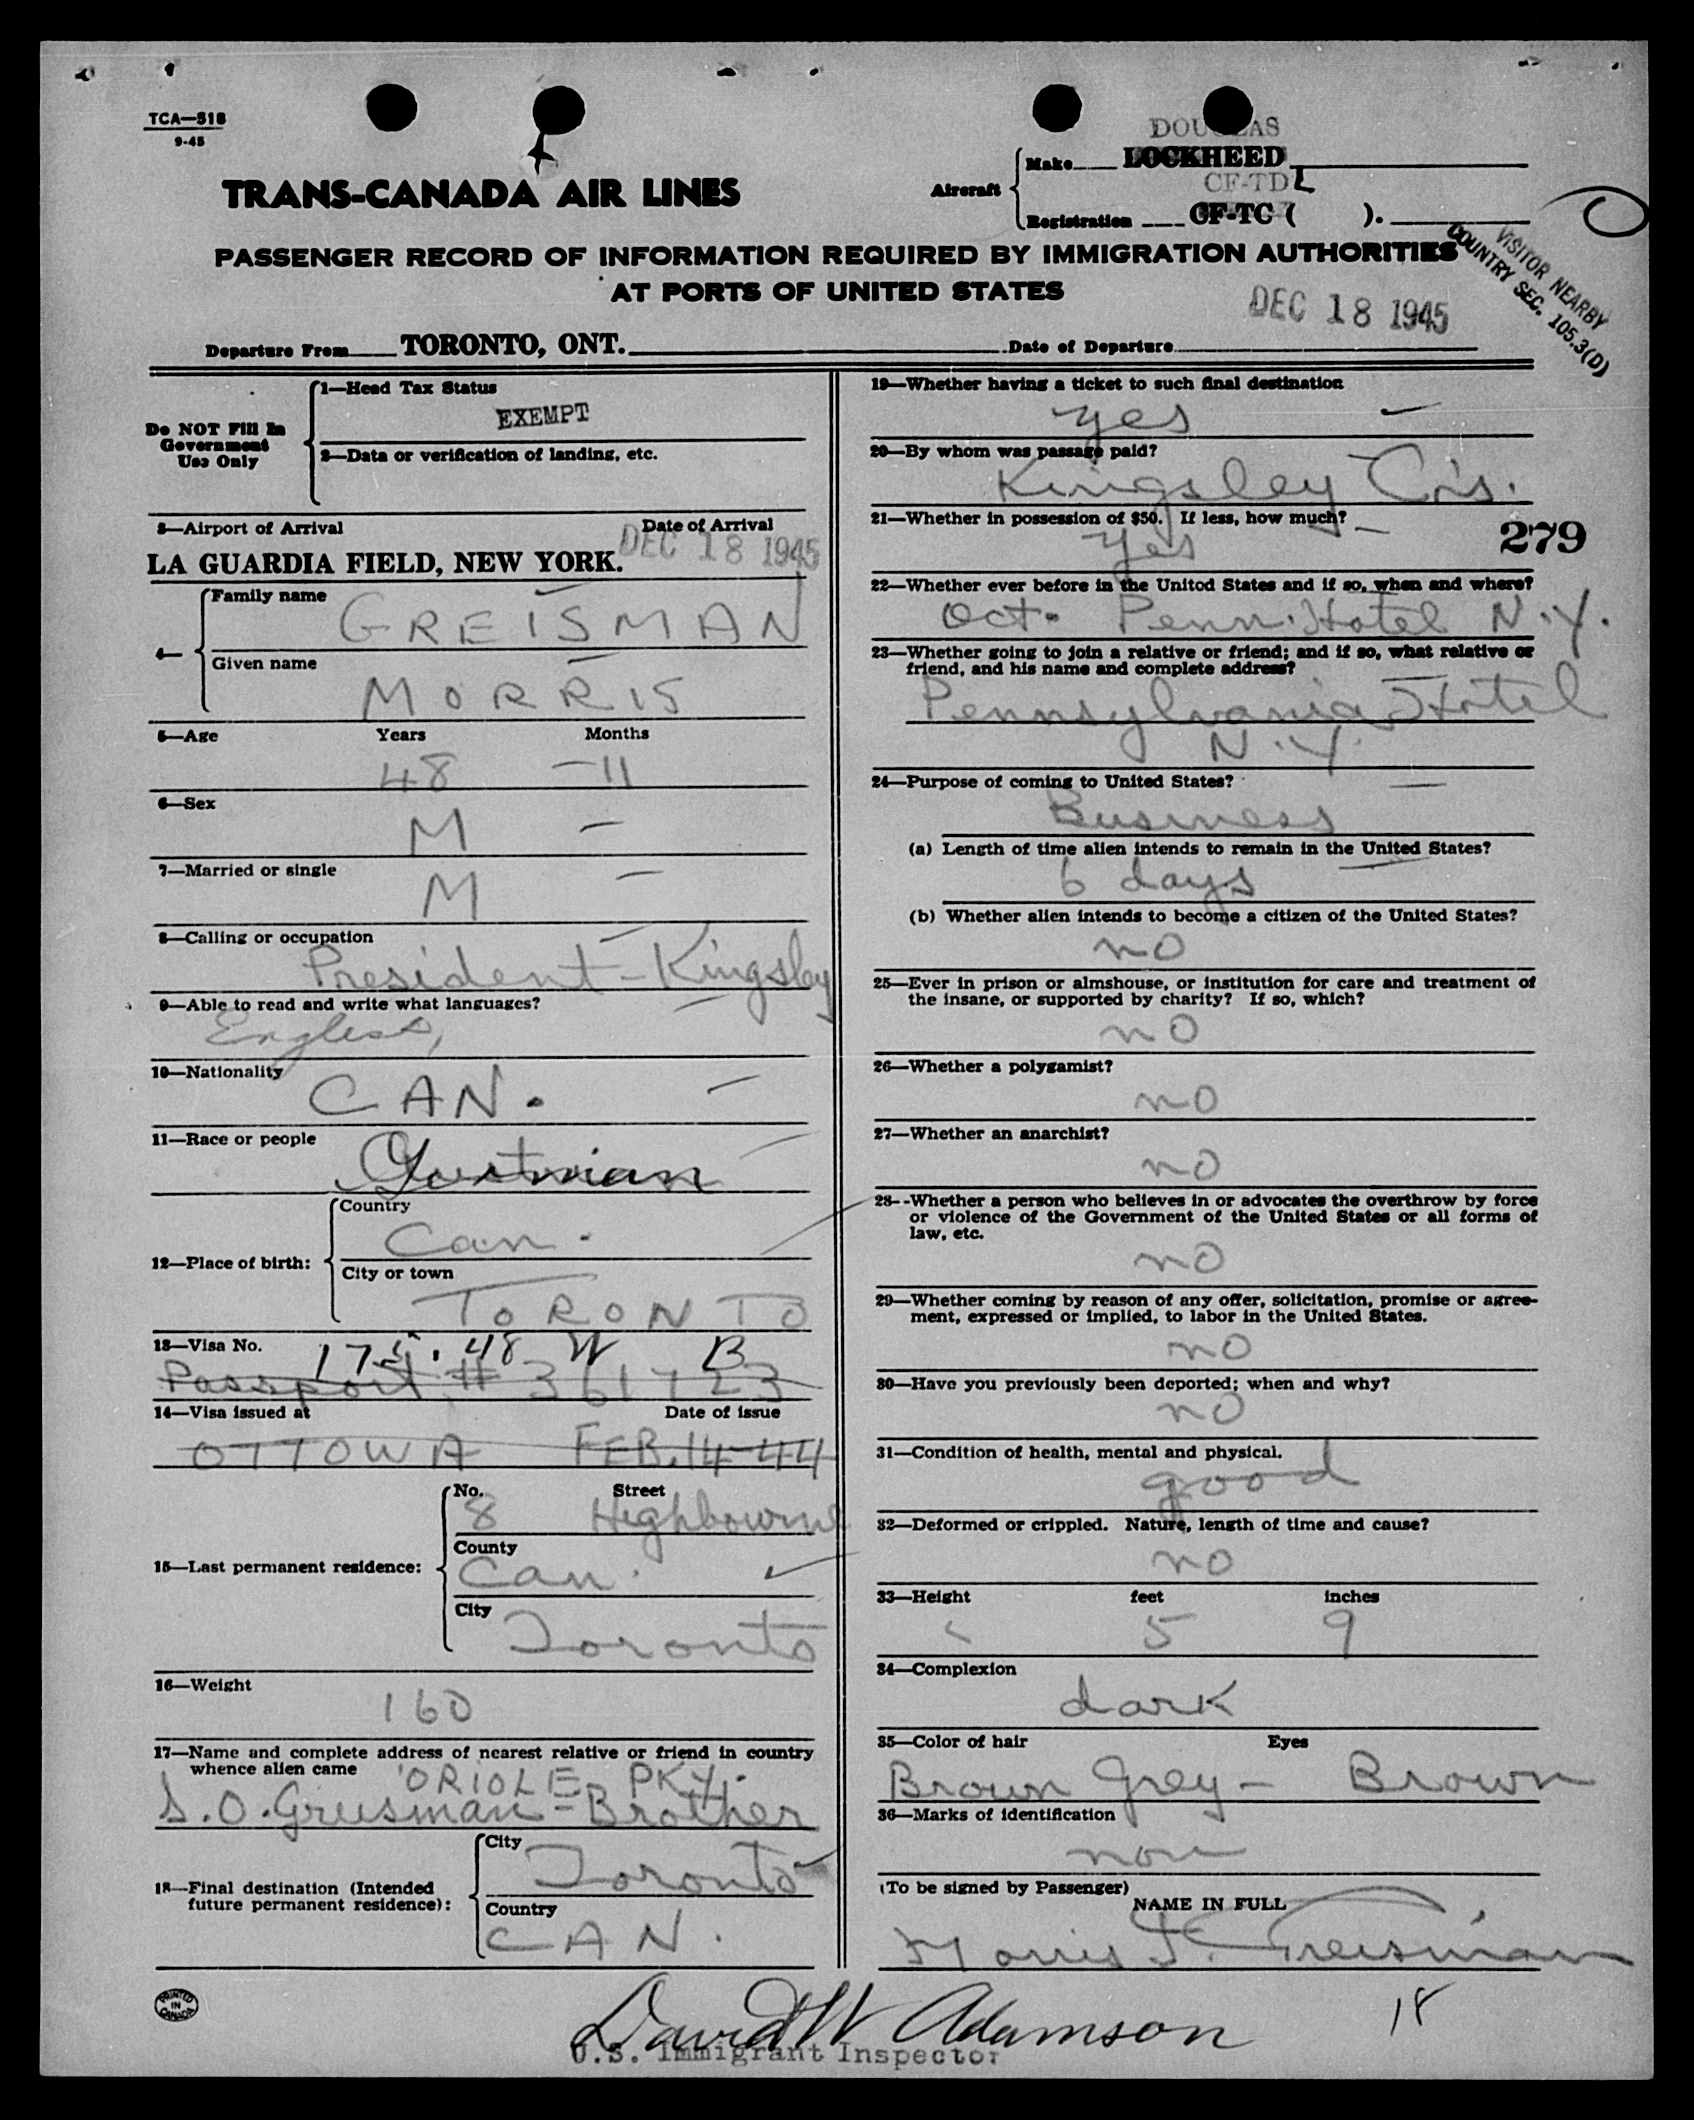 TCA—518
9-45
DOUGLAS
Make LOCKHEED
TRANS-CANADA AIR LINES
Aircraft
CF-TDL
Registration CF-TC ( ).
PASSENGER RECORD OF INFORMATION REQUIRED BY IMMIGRATION AUTHORITIES
AT PORTS OF UNITED STATES
VISITOR NEARBY
COUNTRY SEC. 105.3(D)
DEC 18 1945
Departure From TORONTO, ONT. Date of Departure
Do NOT Fill In
Government
Use Only
1—Head Tax Status
EXEMPT
2—Data or verification of landing, etc.
3—Airport of Arrival Date of Arrival
LA GUARDIA FIELD, NEW YORK. DEC 18 1945
4— Family name
GREISMAN
Given name
MORRIS
5—Age Years Months
48 – 11
6—Sex
M
7—Married or single
M
8—Calling or occupation
President – Kingsley
9—Able to read and write what languages?
English,
10—Nationality
CAN.
11—Race or people
12—Place of birth:
Country
Can.
City or town
TORONTO
13—Visa No. 175.48 W B
Passport # 361723
14—Visa issued at Date of issue
OTTOWA FEB. 14-44
15—Last permanent residence:
No. Street
8 Highbourne
County
Can.
City
Toronto
16—Weight
160
17—Name and complete address of nearest relative or friend in country
whence alien came ORIOLE PKY.
S.O. Greisman – Brother
18—Final destination (Intended
future permanent residence):
City
Toronto
Country
CAN.
19—Whether having a ticket to such final destination
yes
20—By whom was passage paid?
Kingsley
21—Whether in possession of $50. If less, how much?
yes
279
22—Whether ever before in the United States and if so, when and where?
Oct. Penn. Hotel N.Y.
23—Whether going to join a relative or friend; and if so, what relative or
friend, and his name and complete address?
Pennsylvania Hotel
N.Y.
24—Purpose of coming to United States?
Business
(a) Length of time alien intends to remain in the United States?
6 days
(b) Whether alien intends to become a citizen of the United States?
no
25—Ever in prison or almshouse, or institution for care and treatment of
the insane, or supported by charity? If so, which?
no
26—Whether a polygamist?
no
27—Whether an anarchist?
no
28--Whether a person who believes in or advocates the overthrow by force
or violence of the Government of the United States or all forms of
law, etc.
no
29—Whether coming by reason of any offer, solicitation, promise or agree-
ment, expressed or implied, to labor in the United States.
no
30—Have you previously been deported; when and why?
no
31—Condition of health, mental and physical.
good
32—Deformed or crippled. Nature, length of time and cause?
no
33—Height feet inches
5 9
34—Complexion
dark
35—Color of hair Eyes
Brown Grey – Brown
36—Marks of identification
non
(To be signed by Passenger)
NAME IN FULL
Morris Greisman
18
PRINTED IN CANADA
David W Adamson
U.S. Immigrant Inspector